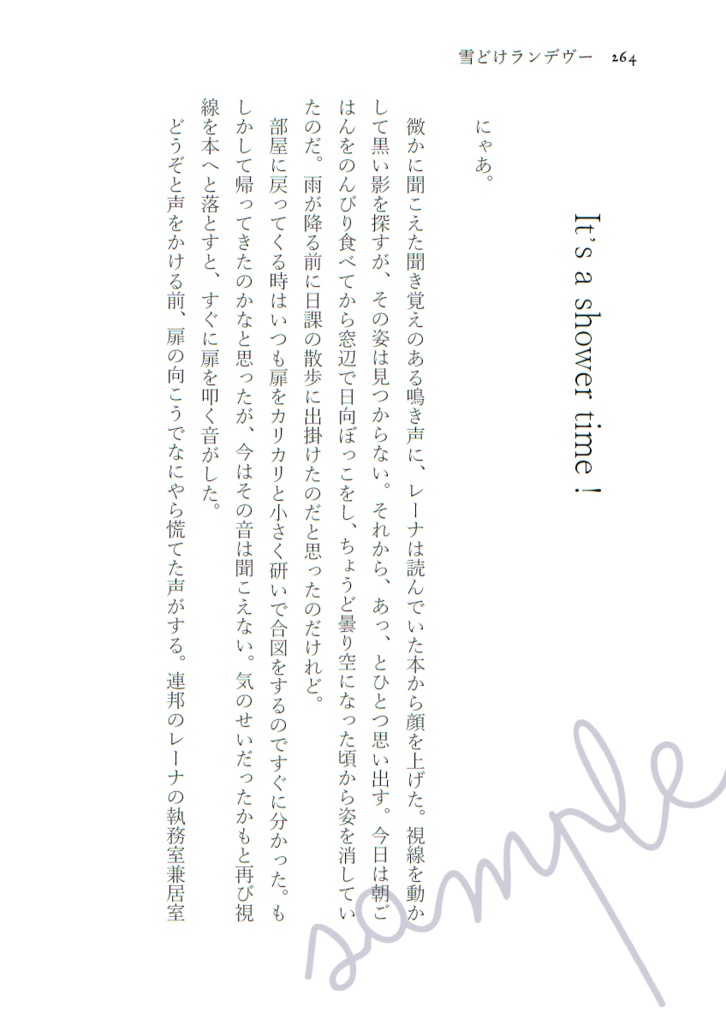 雪どけランデヴー 264
It's a shower time！
にゃあ。
微かに聞こえた聞き覚えのある鳴き声に、レーナは読んでいた本から顔を上げた。視線を動か
して黒い影を探すが、その姿は見つからない。それから、あっ、とひとつ思い出す。今日は朝ご
はんをのんびり食べてから窓辺で日向ぼっこをし、ちょうど曇り空になった頃から姿を消してい
たのだ。雨が降る前に日課の散歩に出掛けたのだと思ったのだけれど。
部屋に戻ってくる時はいつも扉をカリカリと小さく研いで合図をするのですぐに分かった。も
しかして帰ってきたのかなと思ったが、今はその音は聞こえない。気のせいだったかもと再び視
線を本へと落とすと、すぐに扉を叩く音がした。
どうぞと声をかける前、扉の向こうでなにやら慌てた声がする。連邦のレーナの執務室兼居室
sample